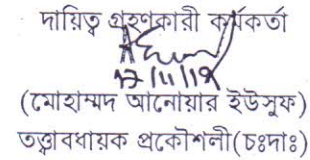 দায়িত্ব গ্রহণকারী কর্মকর্তা
(মোহাম্মদ আনোয়ার ইউসুফ)
তত্ত্বাবধায়ক প্রকৌশলী(চঃদাঃ)